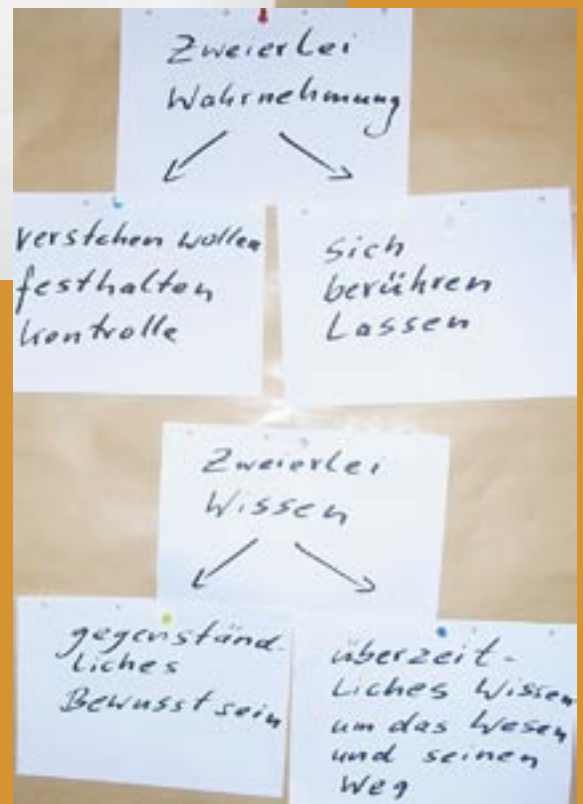 Zweierlei
Wahrnehmung
verstehen wollen
festhalten
Kontrolle
sich
berühren
Lassen
Zweierlei
Wissen
gegenständ-
Liches
Bewusstsein
überzeit-
Liches Wissen
um das Wesen
und seinen
Weg